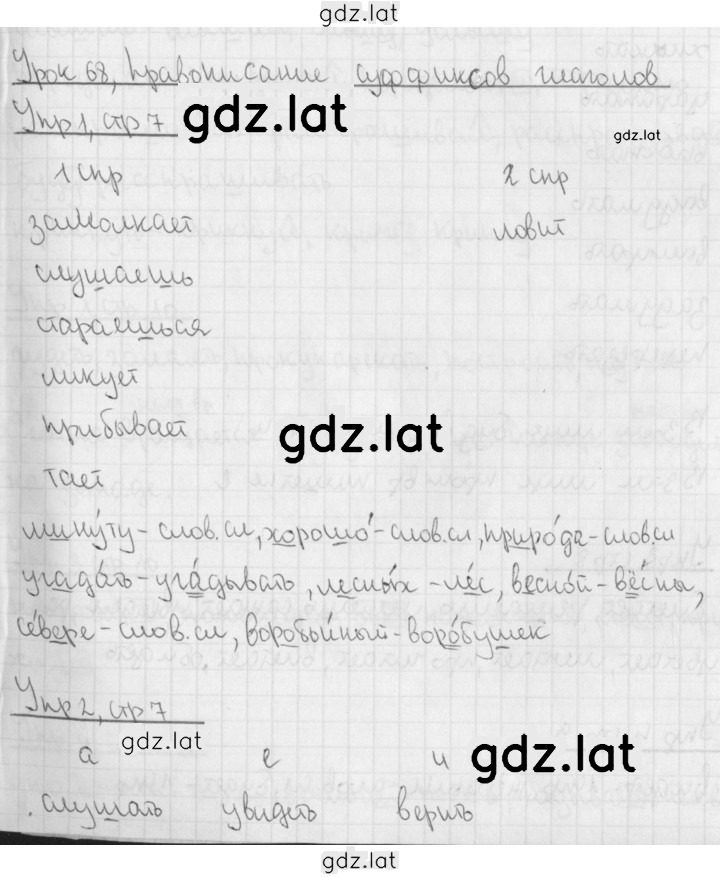 gdz.lat
Урок 68, Правописание суффиксов глаголов
Упр 1, стр 7 gdz.lat gdz.lat
1 спр 2 спр
замолкает ловит
слушаешь
стараешься
ликует
прибывает gdz.lat
тает
минýту - слов.сл, хорошó - слов.сл, прирóда - слов.сл
угадáть - угáдывать, лесны́х - лéс, веснóй - вёсны,
сéвере - слов.сл, воробьи́ный - ворóбушек
Упр 2, стр 7
gdz.lat
а е и gdz.lat
слушать увидеть верить
gdz.lat